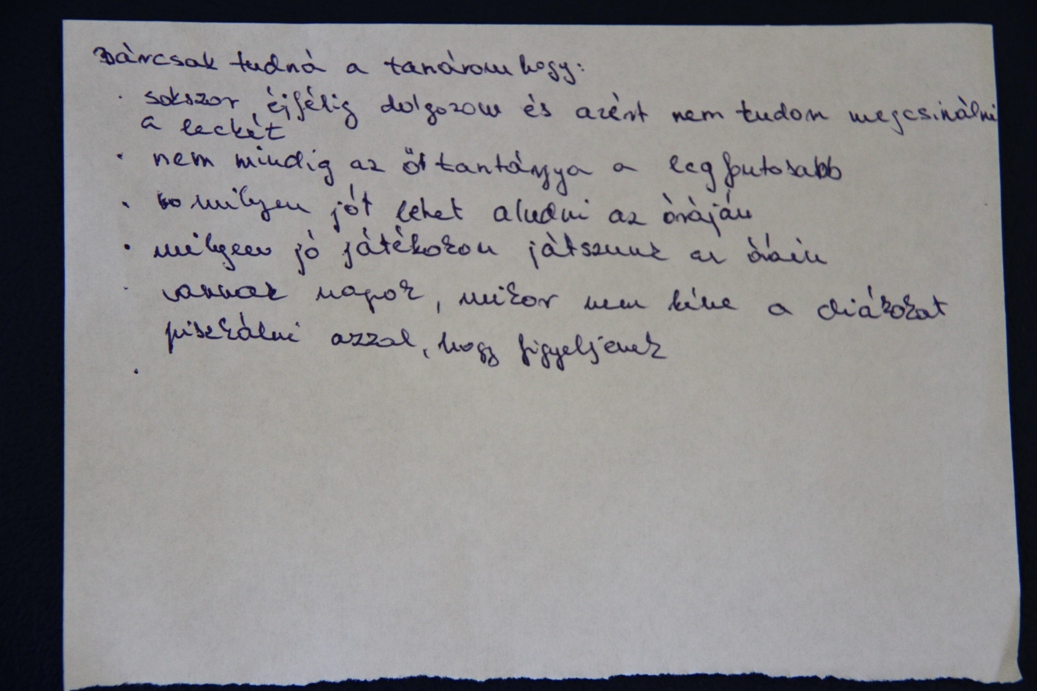 Bárcsak tudná a tanárom hogy:
· sokszor éjfélig dolgozom és azért nem tudom megcsinálni
a leckét
· nem mindig az ő tantárgya a legfontosabb
· milyen jót lehet aludni az óráján
· milyen jó játékokon játszunk az óráin
· vannak napok, mikor nem kéne a diákokat
piszkálni azzal, hogy figyeljenek
·